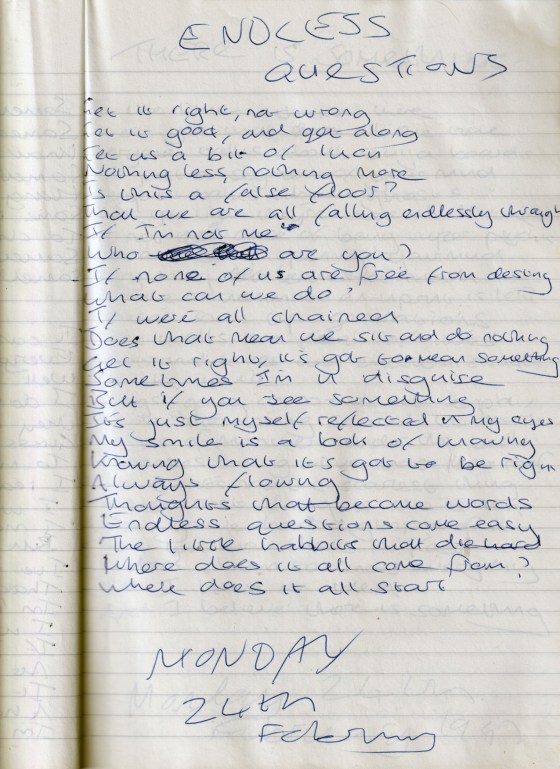 ENDLESS
QUESTIONS
Get it right, not wrong
Get it good, and get along
Get us a bit of luck
Nothing less, nothing more
Is this a false floor?
That we are all falling endlessly through
If I'm not me
Who are you?
If none of us are free from destiny
What can we do?
If we're all chained
Does that mean we sit and do nothing
Get it right, it's got to mean something
Sometimes I'm in disguise
But if you see something
It's just myself reflected in my eyes
My smile is a book of knowing
Knowing that it's got to be right
Always flowing
Thoughts that become words
Endless questions come easy
The little habbits that die hard
Where does it all come from?
Where does it all start
MONDAY
24th
February